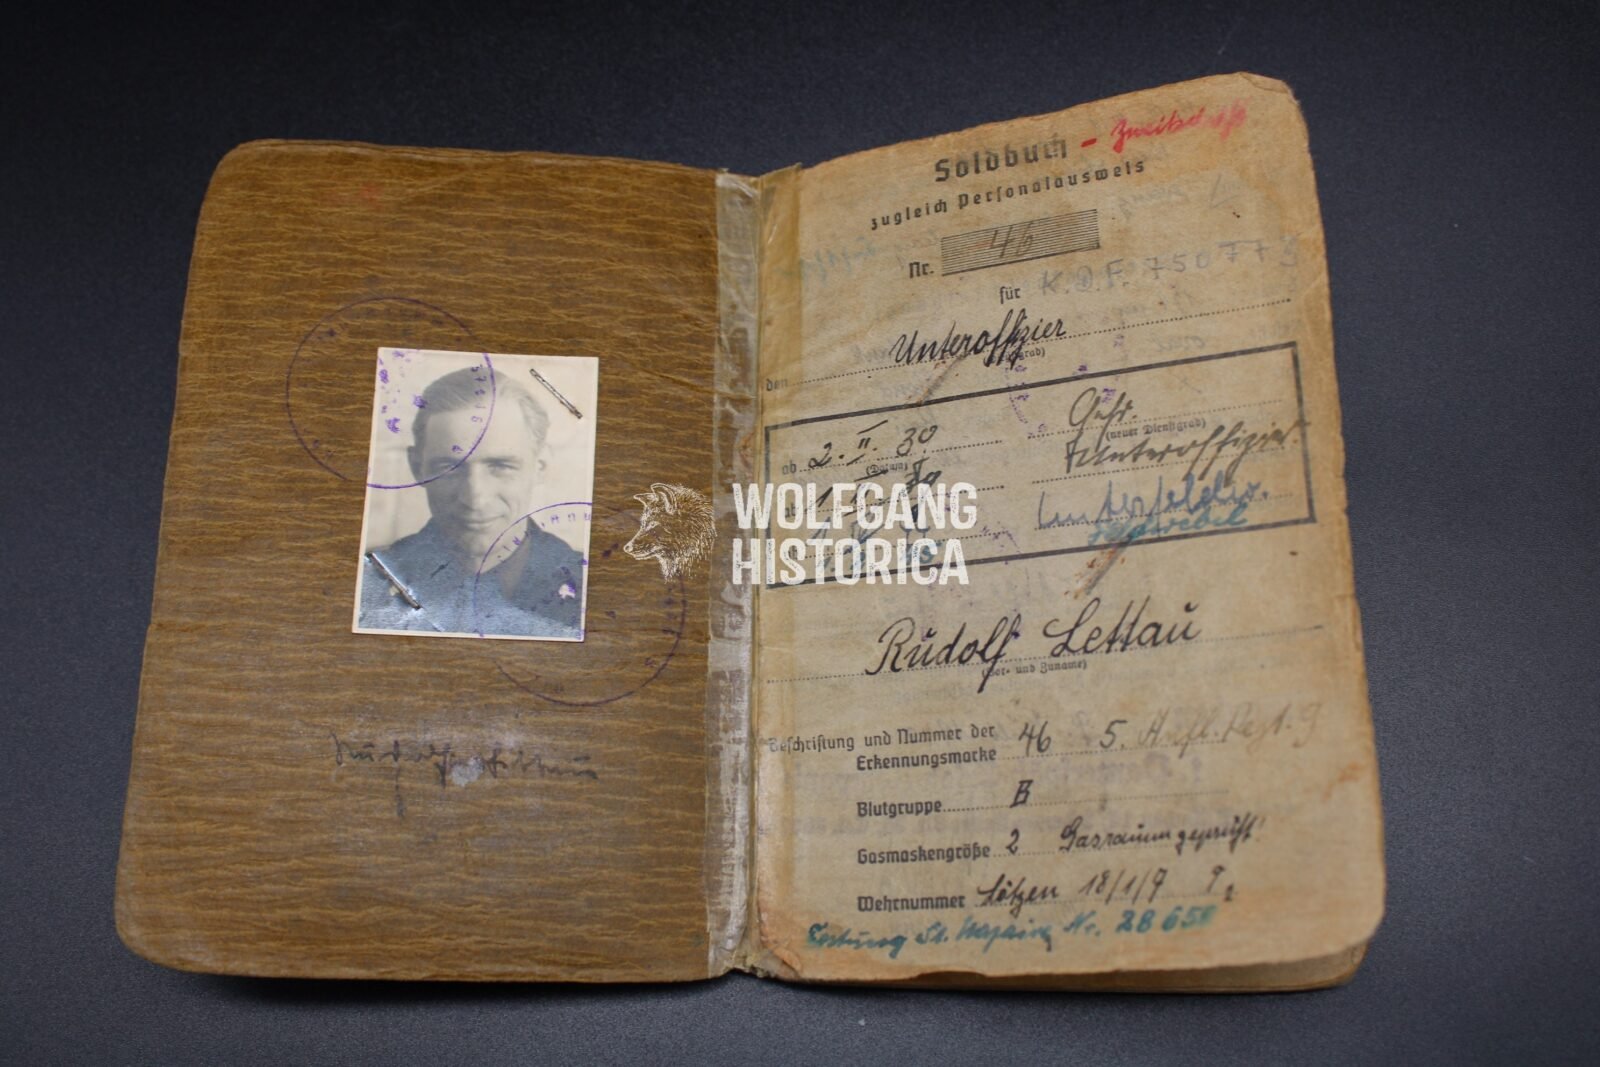 Soldbuch - Zweitschrift
zugleich Personalausweis
Nr. 46
für K.D.F. 750773
den Unteroffizier
ab 2. II. 39. Gefr.
(Datum) (neuer Dienstgrad)
ab Unteroffizier
Unterfeldw.
Feldwebel
WOLFGANG
HISTORICA
Rudolf Lettau
(Vor- und Zuname)
Beschriftung und Nummer der
Erkennungsmarke 46 5. Aufkl. Regt. 9
Blutgruppe B
Gasmaskengröße 2 Gasraum geprüft!
Wehrnummer Lötzen 18/1/7
Festung St. Nazaire Nr. 28 658